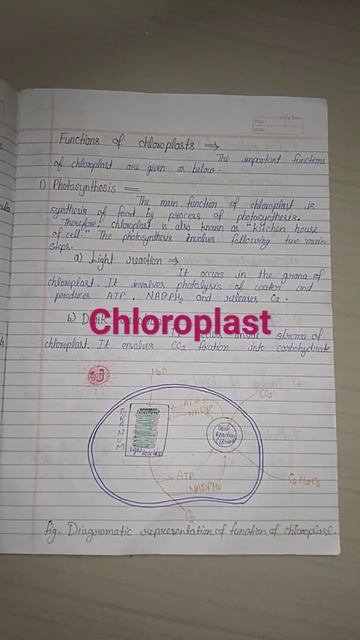 Functions of chloroplasts ⇒
The important functions
of chloroplast are given as below.
1) Photosynthesis
The main function of chloroplast is
synthesis of food by process of photosynthesis.
Therefore, chloroplast is also known as "kitchen house
of cell". The photosynthesis involves following two main
steps.
a) Light reaction ⇒
It occurs in the grana of
chloroplast. It involves photolysis of water and
produces ATP, NADPH2 and releases O2.
b) Dark
Chloroplast
stroma of
chloroplast. It envolves CO2 fixation into carbohydrate
H2O
CO2
ADP
NADP
GRANUM
Dark
Reaction
Light Reaction
ATP
NADPH2
C6H12O6
O2
fig. Diagramatic representation of function of chloroplast.